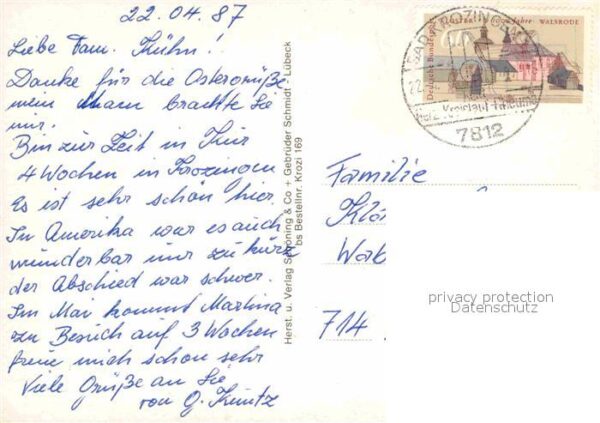 22.04.87
Liebe Fam. Kühn!
Danke für die Ostergrüße
mein Mann brachte Sie
mir.
Bin zur Zeit in Kur
4 Wochen in Krozingen
Es ist sehr schön hier.
In Amerika war es auch
wunderbar nur zu kurz
der Abschied war schwer.
Im Mai kommt Martina
zu Besuch auf 3 Wochen
freue mich schon sehr
Viele Grüße an Sie
von G. Kuntz
Herst. u. Verlag Schöning & Co + Gebrüder Schmidt - Lübeck
bs Bestellnr. Krozi 169
Deutsche Bundespost
KLOSTER 1000 Jahre WALSRODE
BAD KROZINGEN
22.
7812
Familie
714
privacy protection
Datenschutz